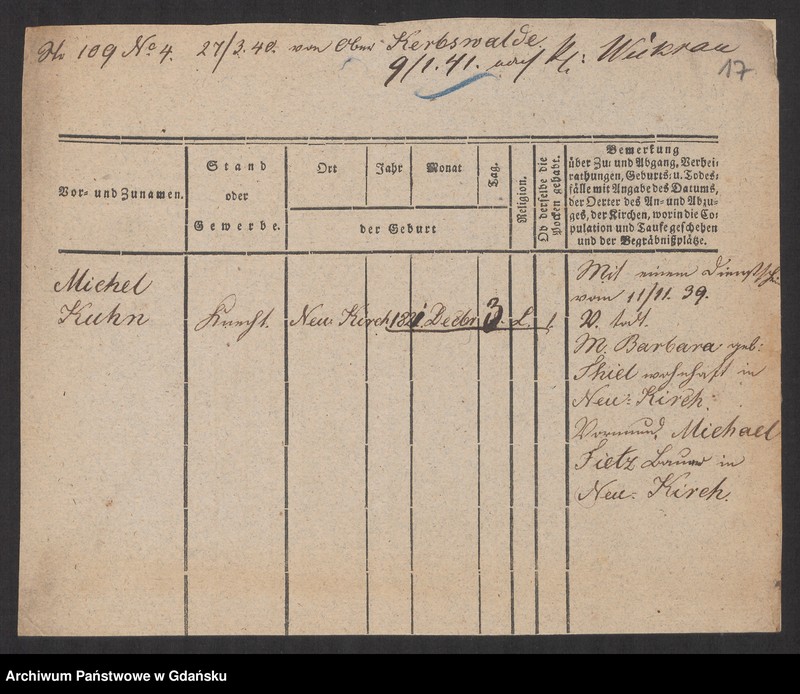 109 No 4. 27/3.40. von Ober Kerbswalde.
9/1.41. nach Kl: Wickrau
17
Vor- und Zunamen.
Stand
oder
Gewerbe.
Ort
Jahr
Monat
Tag.
der Geburt
Religion.
Ob derselbe die
Pocken gehabt.
Bemerkung
über Zu- und Abgang, Verhei-
rathungen, Geburts- u. Todes-
fälle mit Angabe des Datums,
der Oerter des An- und Abzu-
ges, der Kirchen, worin die Co-
pulation und Taufe geschehen
und der Begräbnißplätze.
Michel
Kuhn
Knecht.
Neu-Kirch
1821.
Decbr
3.
L.
1.
Mit einem Dienstsch.
vom 11/11. 39.
V. todt.
M. Barbara geb:
Thiel wohnhaft in
Neu-Kirch.
Vormund, Michael
Tietz Bauer in
Neu-Kirch.
Archiwum Państwowe w Gdańsku